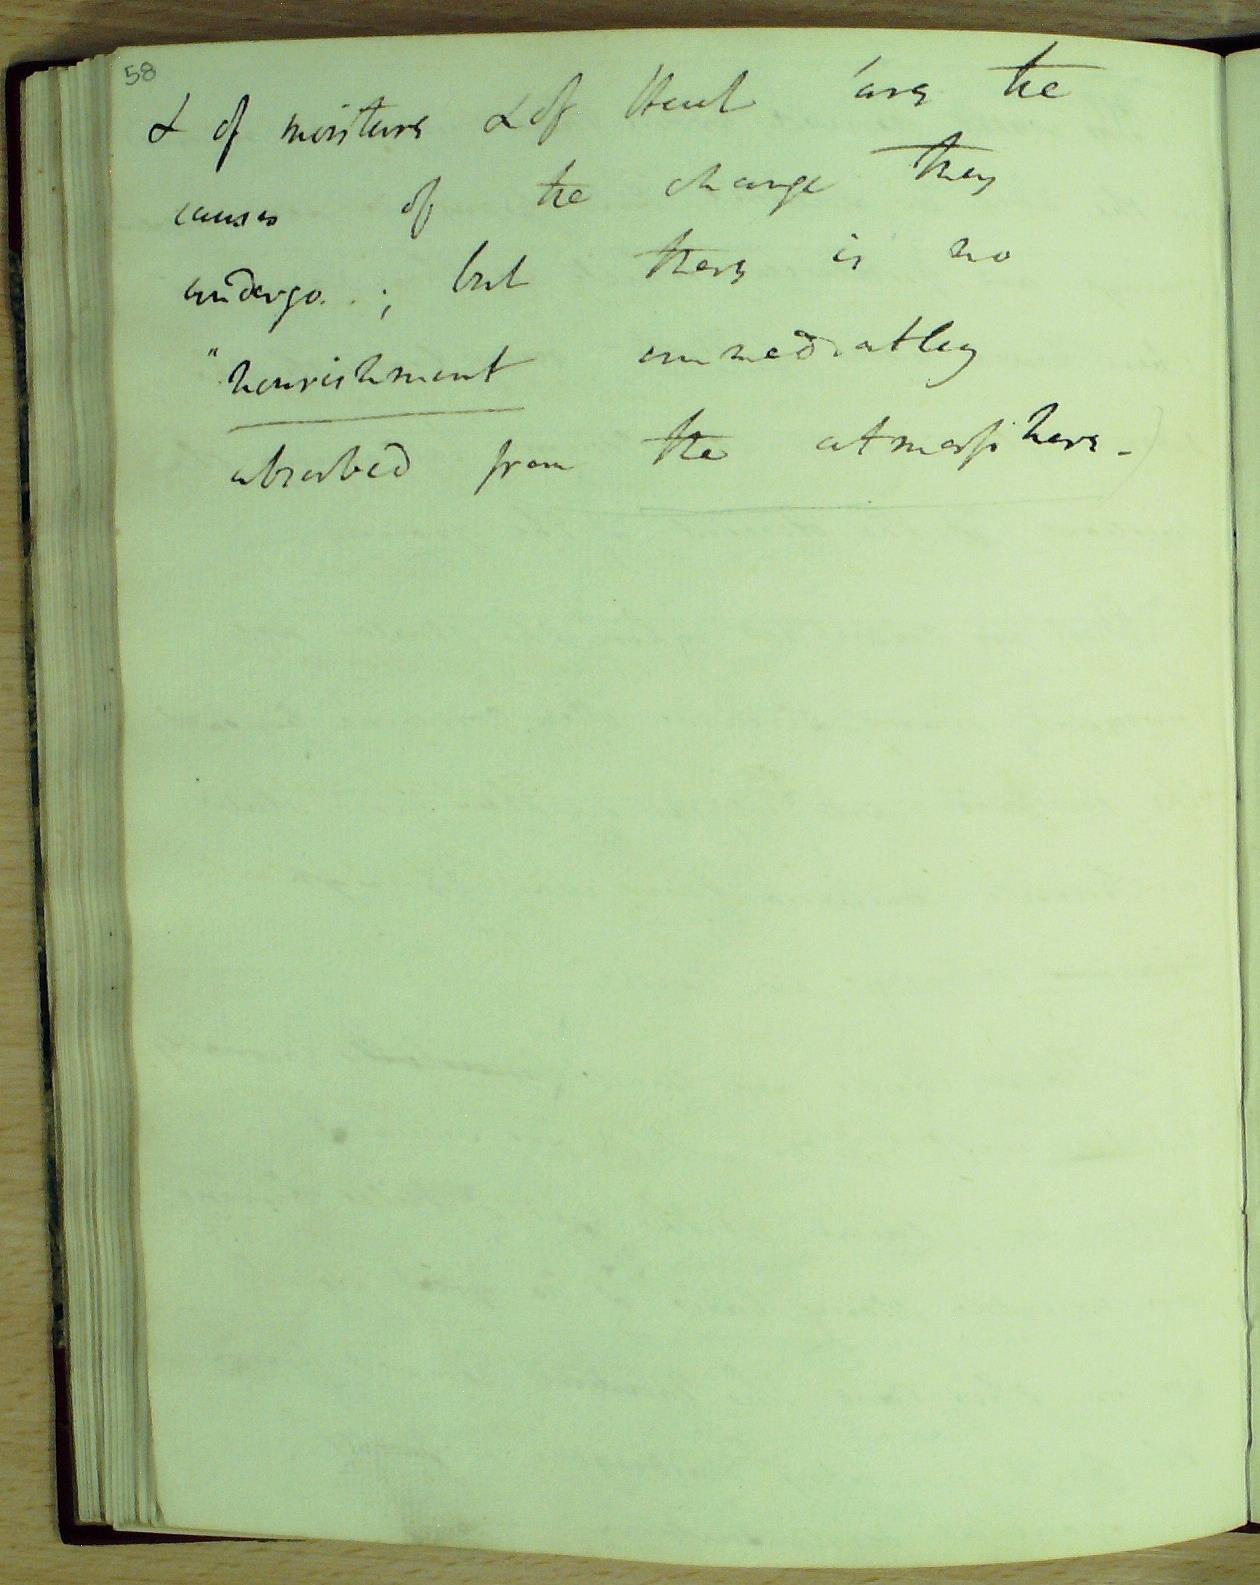 58
& of moisture & of Heat are the
causes of the change they
undergo.; but there is no
"nourishment immediatley
absorbed from the atmosphere.